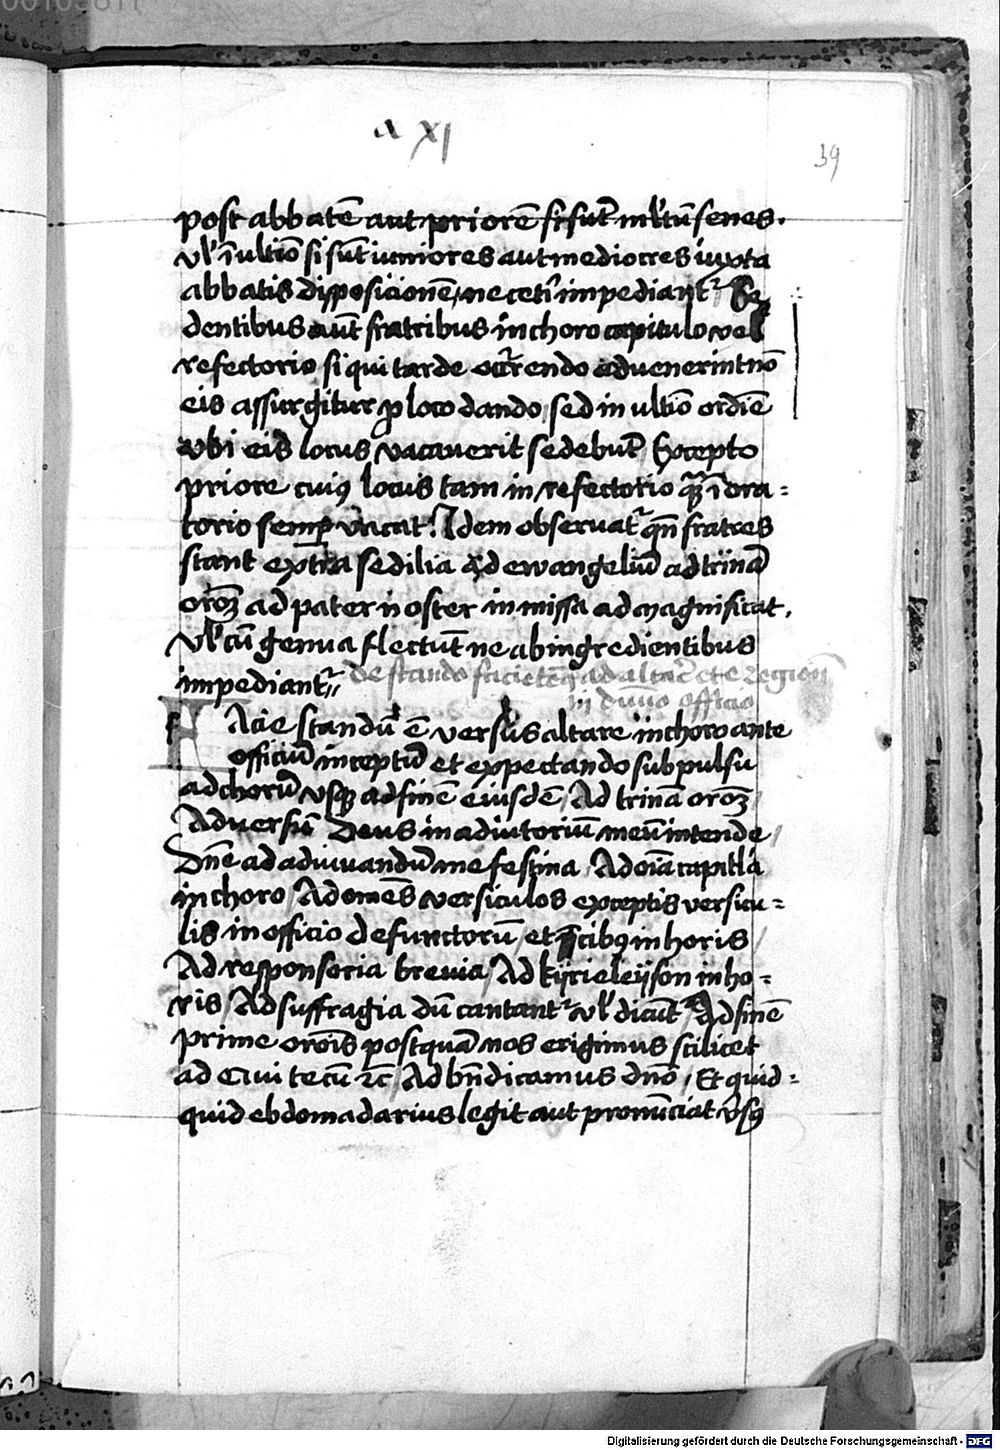 00105811
a xj
39
post abbatē aut priorē si sūt mltū senes.
vl' ī ultīo si sūt iuniores aut mediocres iuxta
abbatis dispositionē, ne ceti' impediant᷑ Se
dentibus aūt fratribus in choro capitulo vel
refectorio si qui tarde occ᷑rendo advenerint nō
eis assurgitur ꝓ loco dando, sed in ultīo ordīe
ubi eis locus vacaverit sedebūt Excepto
priore cuiꝰ locus tam in refectorio qm̄ ī ora-
torio semꝑ vacat. Idem observat᷑ qn̄ fratres
stant extra sedilia Ad ewangeliū ad trinā
orōꝫ ad pater noster in missa ad magnificat.
Vl' cū genua flectūt ne ab ingredientibus
impediant᷑
de stando facietēqꝫ ad altar᷑ et e regione
in divīno officio
FAcie standū ē versus altare in choro ante
officiū inceptū et expectando sub pulsu
ad chorū usqꝫ ad finē eiusdē / Ad trinā orōꝫ /
Ad versū Deus in adiutoriū meū intende /
Dn̄e ad adiuvandū me festina / Ad oīa capitl'a
in choro / Ad omēs versiculos exceptis versicu-
lis in officio defunctorū / et p̄cibꝰ in horis /
Ad responsoria brevia / Ad kÿrieleÿson in ho-
ris / Ad suffragia dū cantant᷑ vl' dicūt᷑ Ad finē
prime orōis postquā nos erigimus scilicet
ad Qui tecū ⁊c / Ad bn̄dicamus dn̄o / Et quid-
quid ebdomadarius legit aut pronūciat usqꝫ
Digitalisierung gefördert durch die Deutsche Forschungsgemeinschaft - DFG